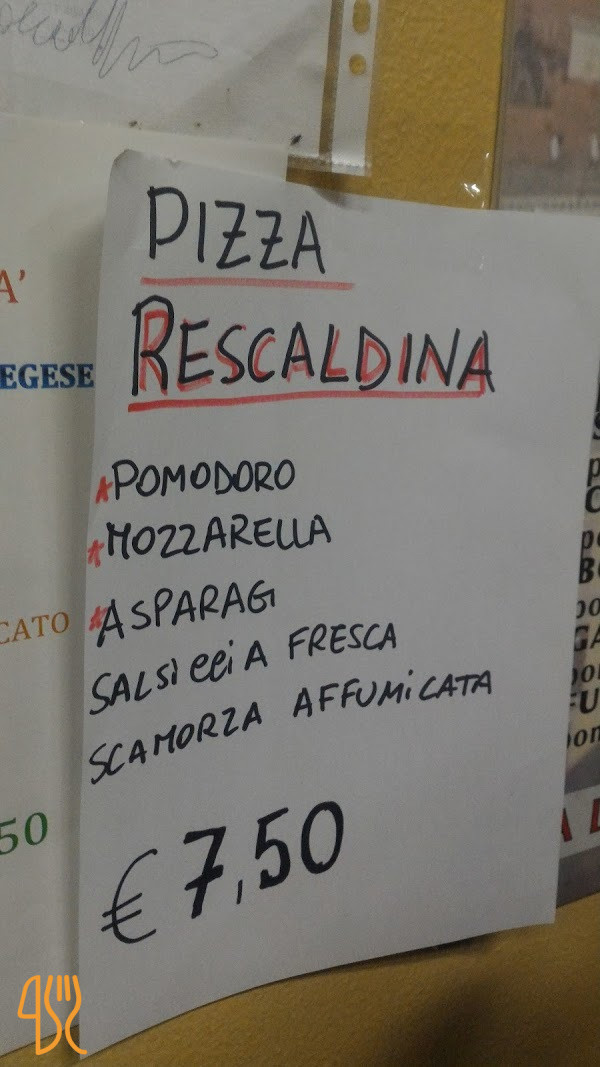 PIZZA
RESCALDINA
POMODORO
MOZZARELLA
ASPARAGI
SALSiCCiA FRESCA
SCAMORZA AFFUMiCATA
€ 7,50
A'
EGESE
CATO
50